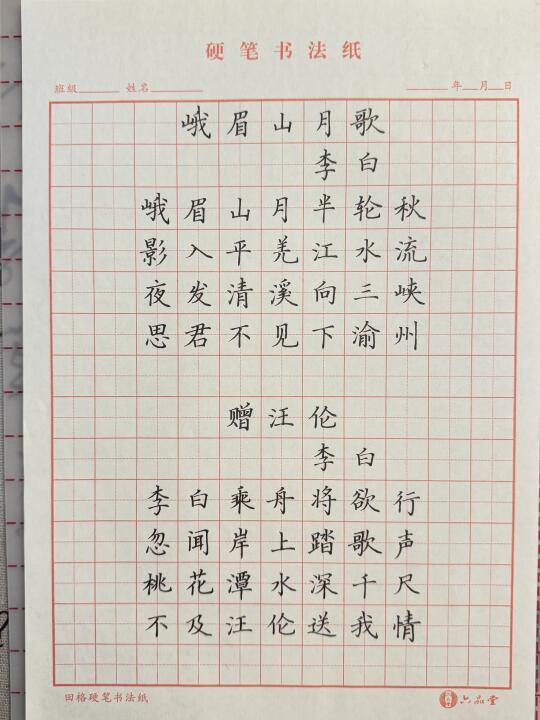 硬笔书法纸
班级 姓名 年 月 日
峨眉山月歌
李白
峨眉山月半轮秋
影入平羌江水流
夜发清溪向三峡
思君不见下渝州
赠汪伦
李白
李白乘舟将欲行
忽闻岸上踏歌声
桃花潭水深千尺
不及汪伦送我情
田格硬笔书法纸
六品堂